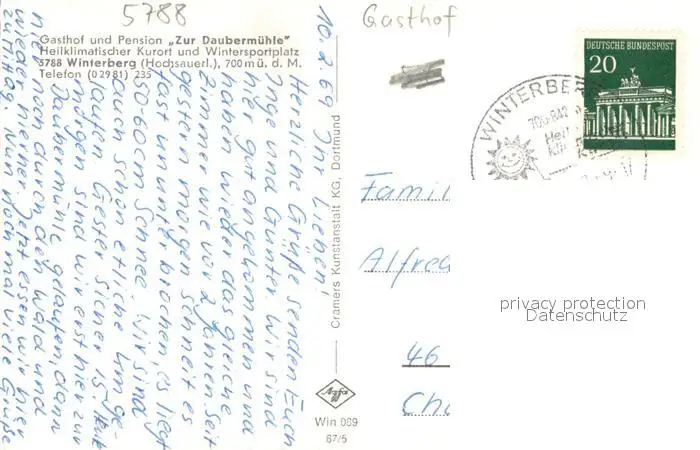 5788
Gasthof und Pension „Zur Daubermühle"
Heilklimatischer Kurort und Wintersportplatz
5788 Winterberg (Hochsauerl.), 700 m ü. d. M.
Telefon (02981) 235
10.2.69 Ihr Lieben,
Herzliche Grüße senden Euch
Inge und Günter. Wir sind
hier gut angekommen und
haben wieder das gleiche
Zimmer wie vor 2 Jahren. Seit
gestern morgen schneit es
fast ununterbrochen, es liegt
50-60cm Schnee. Wir sind
auch schon etliche km ge-
laufen Gester sicher 15. Heute
morgen sind wir erst hier zur
Daubermühle gelaufen, dann
nen durch den Wald und
wieder hierher. Jetzt essen wir hier
zu Mittag. Nun nochmal viele Grüße
Cramers Kunstanstalt KG, Dortmund
Agfa
Win 089
67/5
Gasthof
DEUTSCHE BUNDESPOST
20
WINTERBER
700-842
Famil
Alfred
46
Ch
privacy protection
Datenschutz